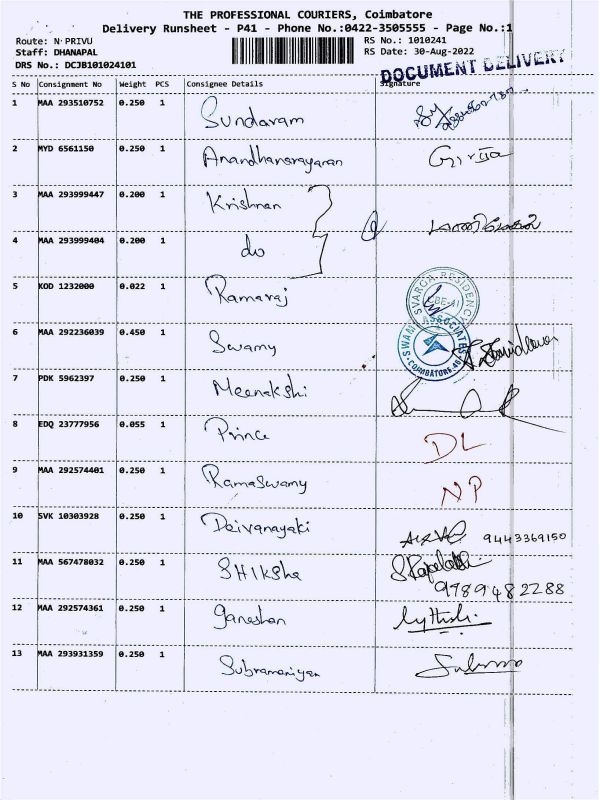 THE PROFESSIONAL COURIERS, Coimbatore
Delivery Runsheet - P41 - Phone No.:0422-3505555 - Page No.:1
Route: N PRIVU
Staff: DHANAPAL
DRS No.: DCJB101024101
RS No.: 1010241
RS Date: 30-Aug-2022
DOCUMENT DELIVERY
S No Consignment No Weight PCS Consignee Details Signature
1 MAA 293510752 0.250 1 Sundaram
2 MYD 6561150 0.250 1 Anandhanarayanan
3 MAA 293999447 0.200 1 Krishnan
4 MAA 293999404 0.200 1 do
5 KOD 1232000 0.022 1 Ramaraj
SVARGA RESIDENCY
6 MAA 292236039 0.450 1 Swamy
SWAMY ASSOCIATES
COIMBATORE
7 PDK 5962397 0.250 1 Meenakshi
8 EDQ 23777956 0.055 1 Prince DL
9 MAA 292574401 0.250 1 Ramaswamy NP
10 SVK 10303928 0.250 1 Deivanayaki 9443369150
11 MAA 567478032 0.250 1 SHIKSha
9789482288
12 MAA 292574361 0.250 1 ganeshan
13 MAA 293931359 0.250 1 Subramaniyan